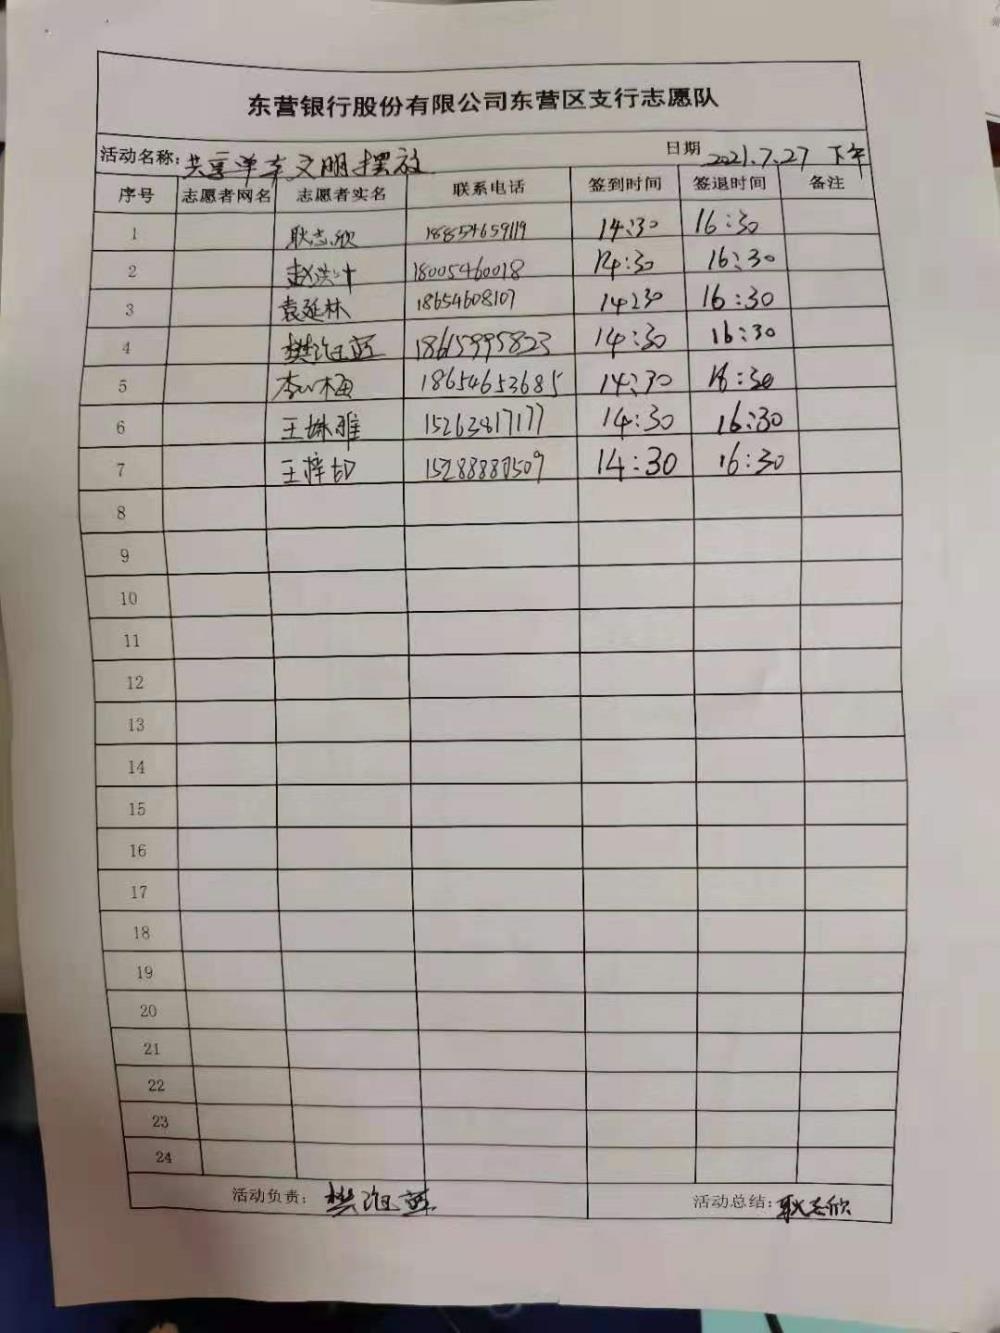 东营银行股份有限公司东营区支行志愿队
活动名称：共享单车文明摆放 日期 2021.7.27 下午
序号 志愿者网名 志愿者实名 联系电话 签到时间 签退时间 备注
1 耿志欣 18854659119 14:30 16:30
2 18005460018 14:30 16:30
3 袁延林 18654608107 14:30 16:30
4 18615995823 14:30 16:30
5 18654653685 14:30 16:30
6 王姝雅 15263817177 14:30 16:30
7 14:30 16:30
8
9
10
11
12
13
14
15
16
17
18
19
20
21
22
23
24
活动负责： 活动总结：耿志欣